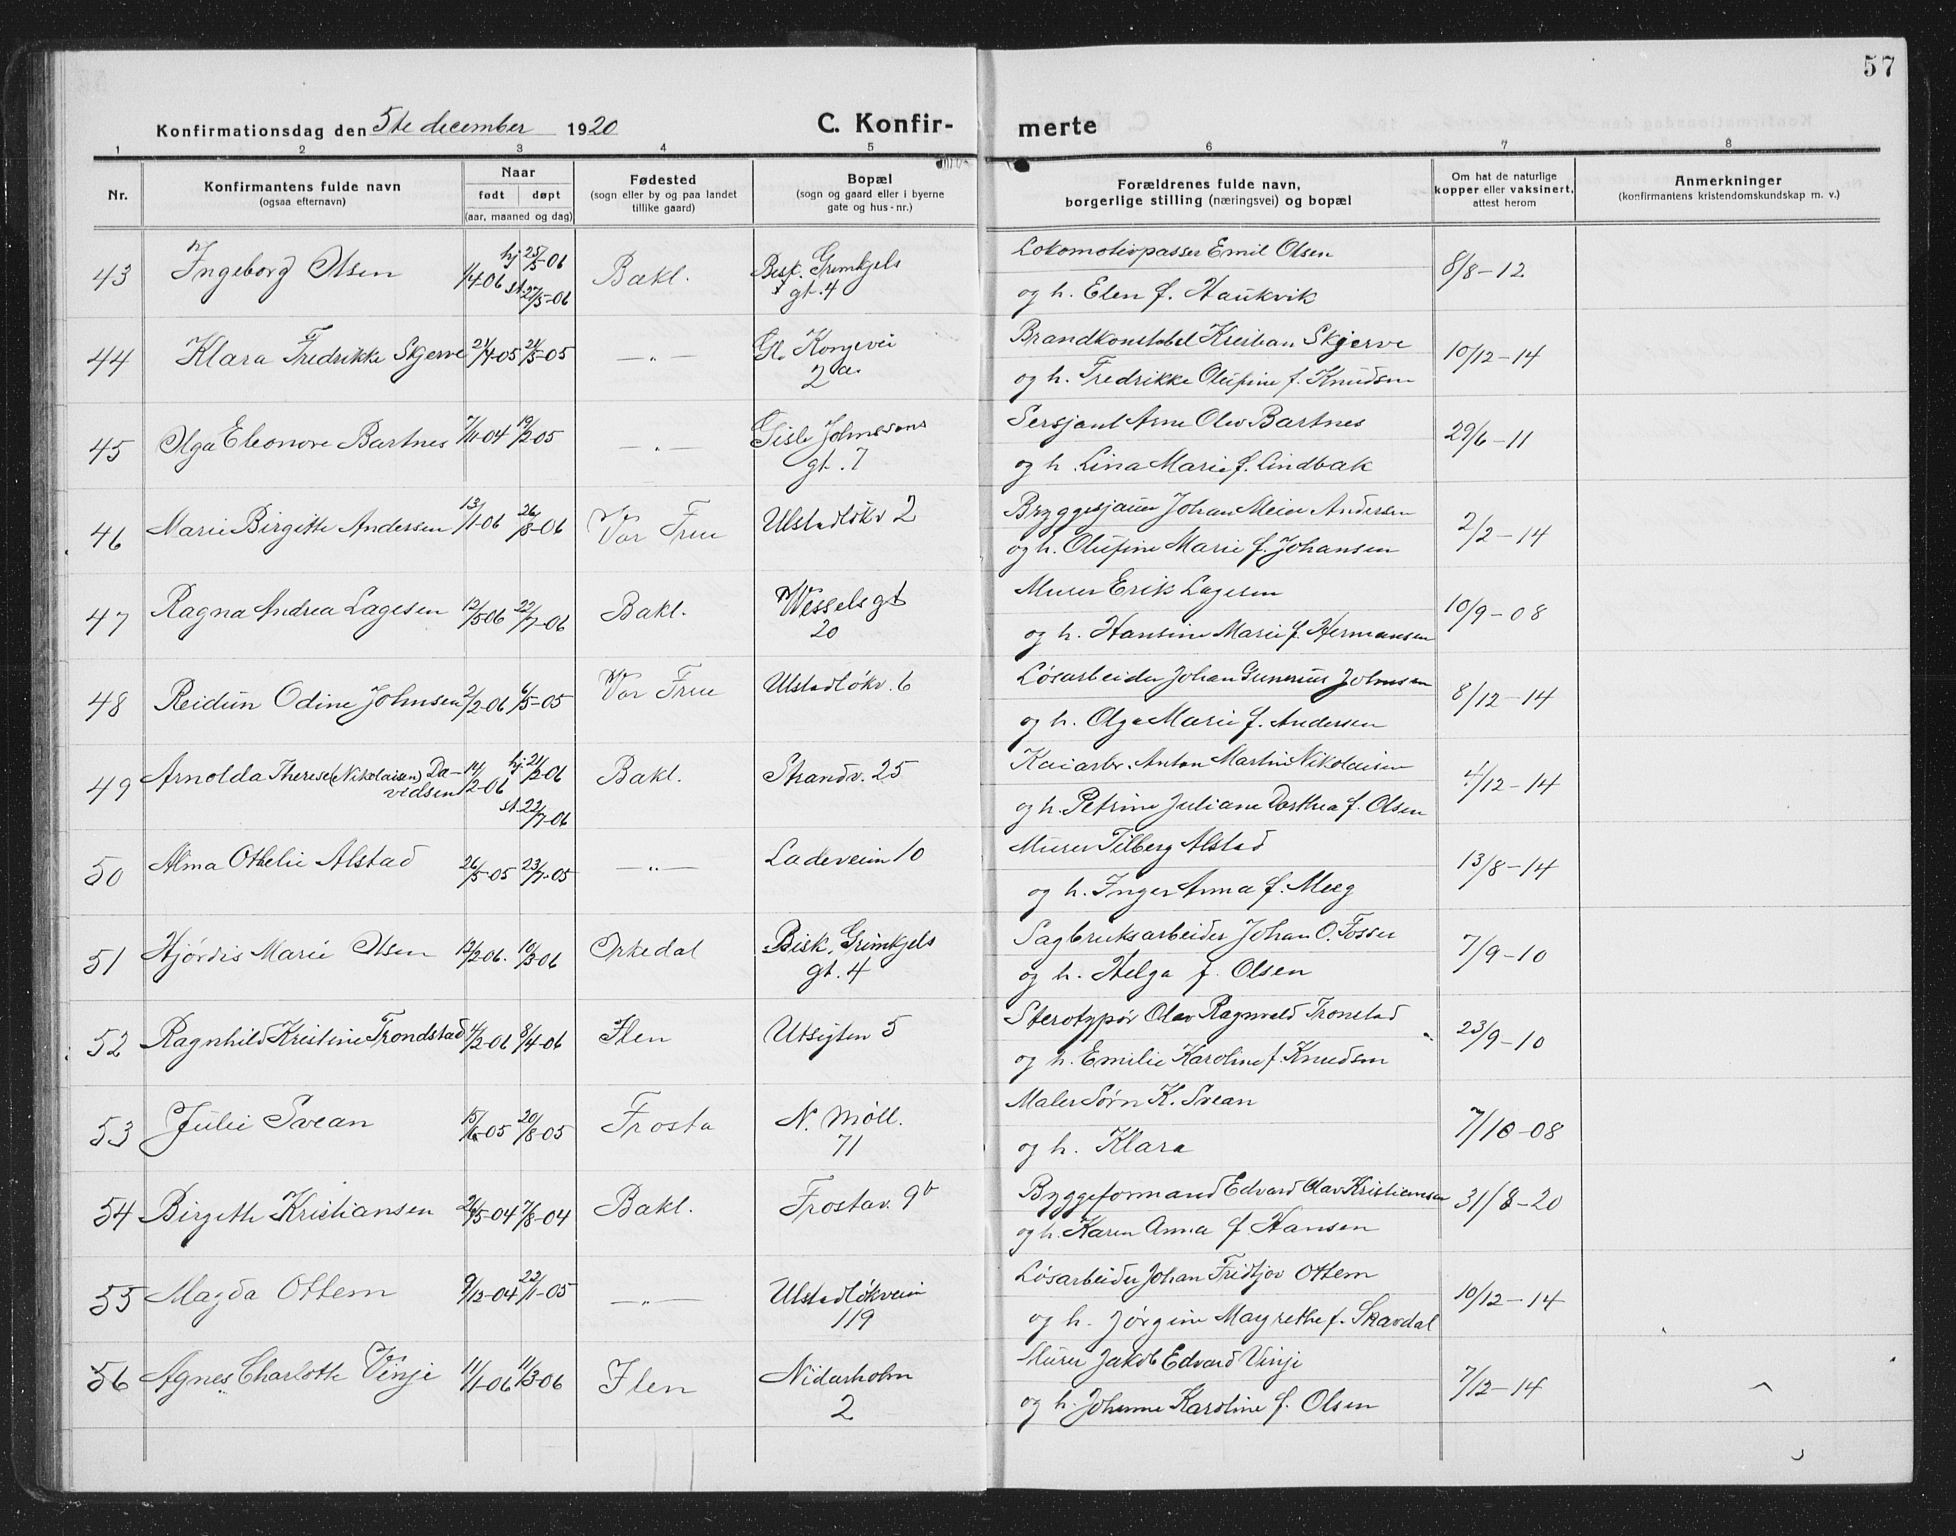 57
Konfirmationsdag den 5te december 1920 C. Konfir- merte
1 2 3 4 5 6 7 8
Nr. Konfirmantens fulde navn (ogsaa efternavn) Naar født døpt (aar, maaned og dag) Fødested (sogn eller by og paa landet tillike gaard) Bopæl (sogn og gaard eller i byerne gate og hus-nr.) Forældrenes fulde navn, borgerlige stilling (næringsvei) og bopæl Om hat de naturlige kopper eller vaksinert, attest herom Anmerkninger (konfirmantens kristendomskundskap m. v.)
43 Ingeborg Olsen 1/4-06 hj 25/5-06 st. 27/5-06 Bakl. Bisk. Grimkjels gt. 4 Lokomotivpasser Emil Olsen
og h. Elen f. Haukvik 8/8-12
44 Klara Fredrikke Skjerve 21/4-05 21/5-05 —"— Gl. Kongevei 2a. Brandkonstabel Kristian Skjerve
og h. Fredrikke Olufine f. Knudsen 10/12-14
45 Olga Eleonore Bartnes 7/11-04 19/2-05 —"— Gisle Johnssons gt. 7 Sersjant Arne Olev Bartnes
og h. Lina Marie f. Lindbak 29/6-11
46 Marie Birgitte Andersen 13/1-06 26/8-06 Vor Frue Ulstadløkv 2 Bryggesjauer Johan Meier Andersen
og h. Olufine Marie f. Johansen 2/2-14
47 Ragna Andrea Lagesen 12/5-06 22/7-06 Bakl. Wesselsgt 20 Murer Erik Lagesen
og h. Hansine Marie f. Hermansen 10/9-08
48 Reidun Odine Johnsen 2/2-06 6/5-05 Vor Frue Ulstadløkv. 6 Løsarbeider Johan Gunerius Johnsen
og h. Olga Marie f. Andersen 8/12-14
49 Arnolda Therese (Nikolaisen) Da-
vidsen 14/2-06 hj. 21/2-06 st. 22/7-06 Bakl. Strandv. 25 Kaiarbr. Anton Martin Nikolaisen
og h. Petrine Juliane Dorthea f. Olsen 4/12-14
50 Alma Othelie Alstad 26/5-05 23/7-05 —"— Ladeveien 10 Murer Tilberg Alstad
og h. Inger Anna f. Meeg 13/8-14
51 Hjørdis Marie Olsen 12/2-06. 10/3-06 Orkedal Bisk. Grimkjels gt. 4 Sagbruksarbeider Johan O. Fosser
og h. Helga f. Olsen 7/9-10
52 Ragnhild Kristine Trondstad 4/2-06 8/4-06 Ilen Utsigten 5 Sterotypør Olav Ragnvald Tronstad
og h. Emilie Karoline f. Knudsen 23/9-10
53 Julie Svean 15/6-05 20/8-05 Frosta N. Møll. 71 Maler Sørn K. Svean
og h. Klara 7/10-08
54 Birgith Kristiansen 26/5-04 7/8-04 Bakl. Frostav. 9b Byggeformand Edvard Olav Kristiansen
og h. Karen Anna f. Hansen 31/8-20
55 Magda Ottem 9/12-04 22/1-05 —"— Ulstadløkveien 119 Løsarbeider Johan Fridtjov Ottem
og h. Jørgine Margrethe f. Skavdal 10/12-14
56 Agnes Charlotte Vinje 11/1-06 11/3-06 Ilen Nidarholm 2 Murer Jakob Edvard Vinje
og h. Johanne Karoline f. Olsen 7/12-14